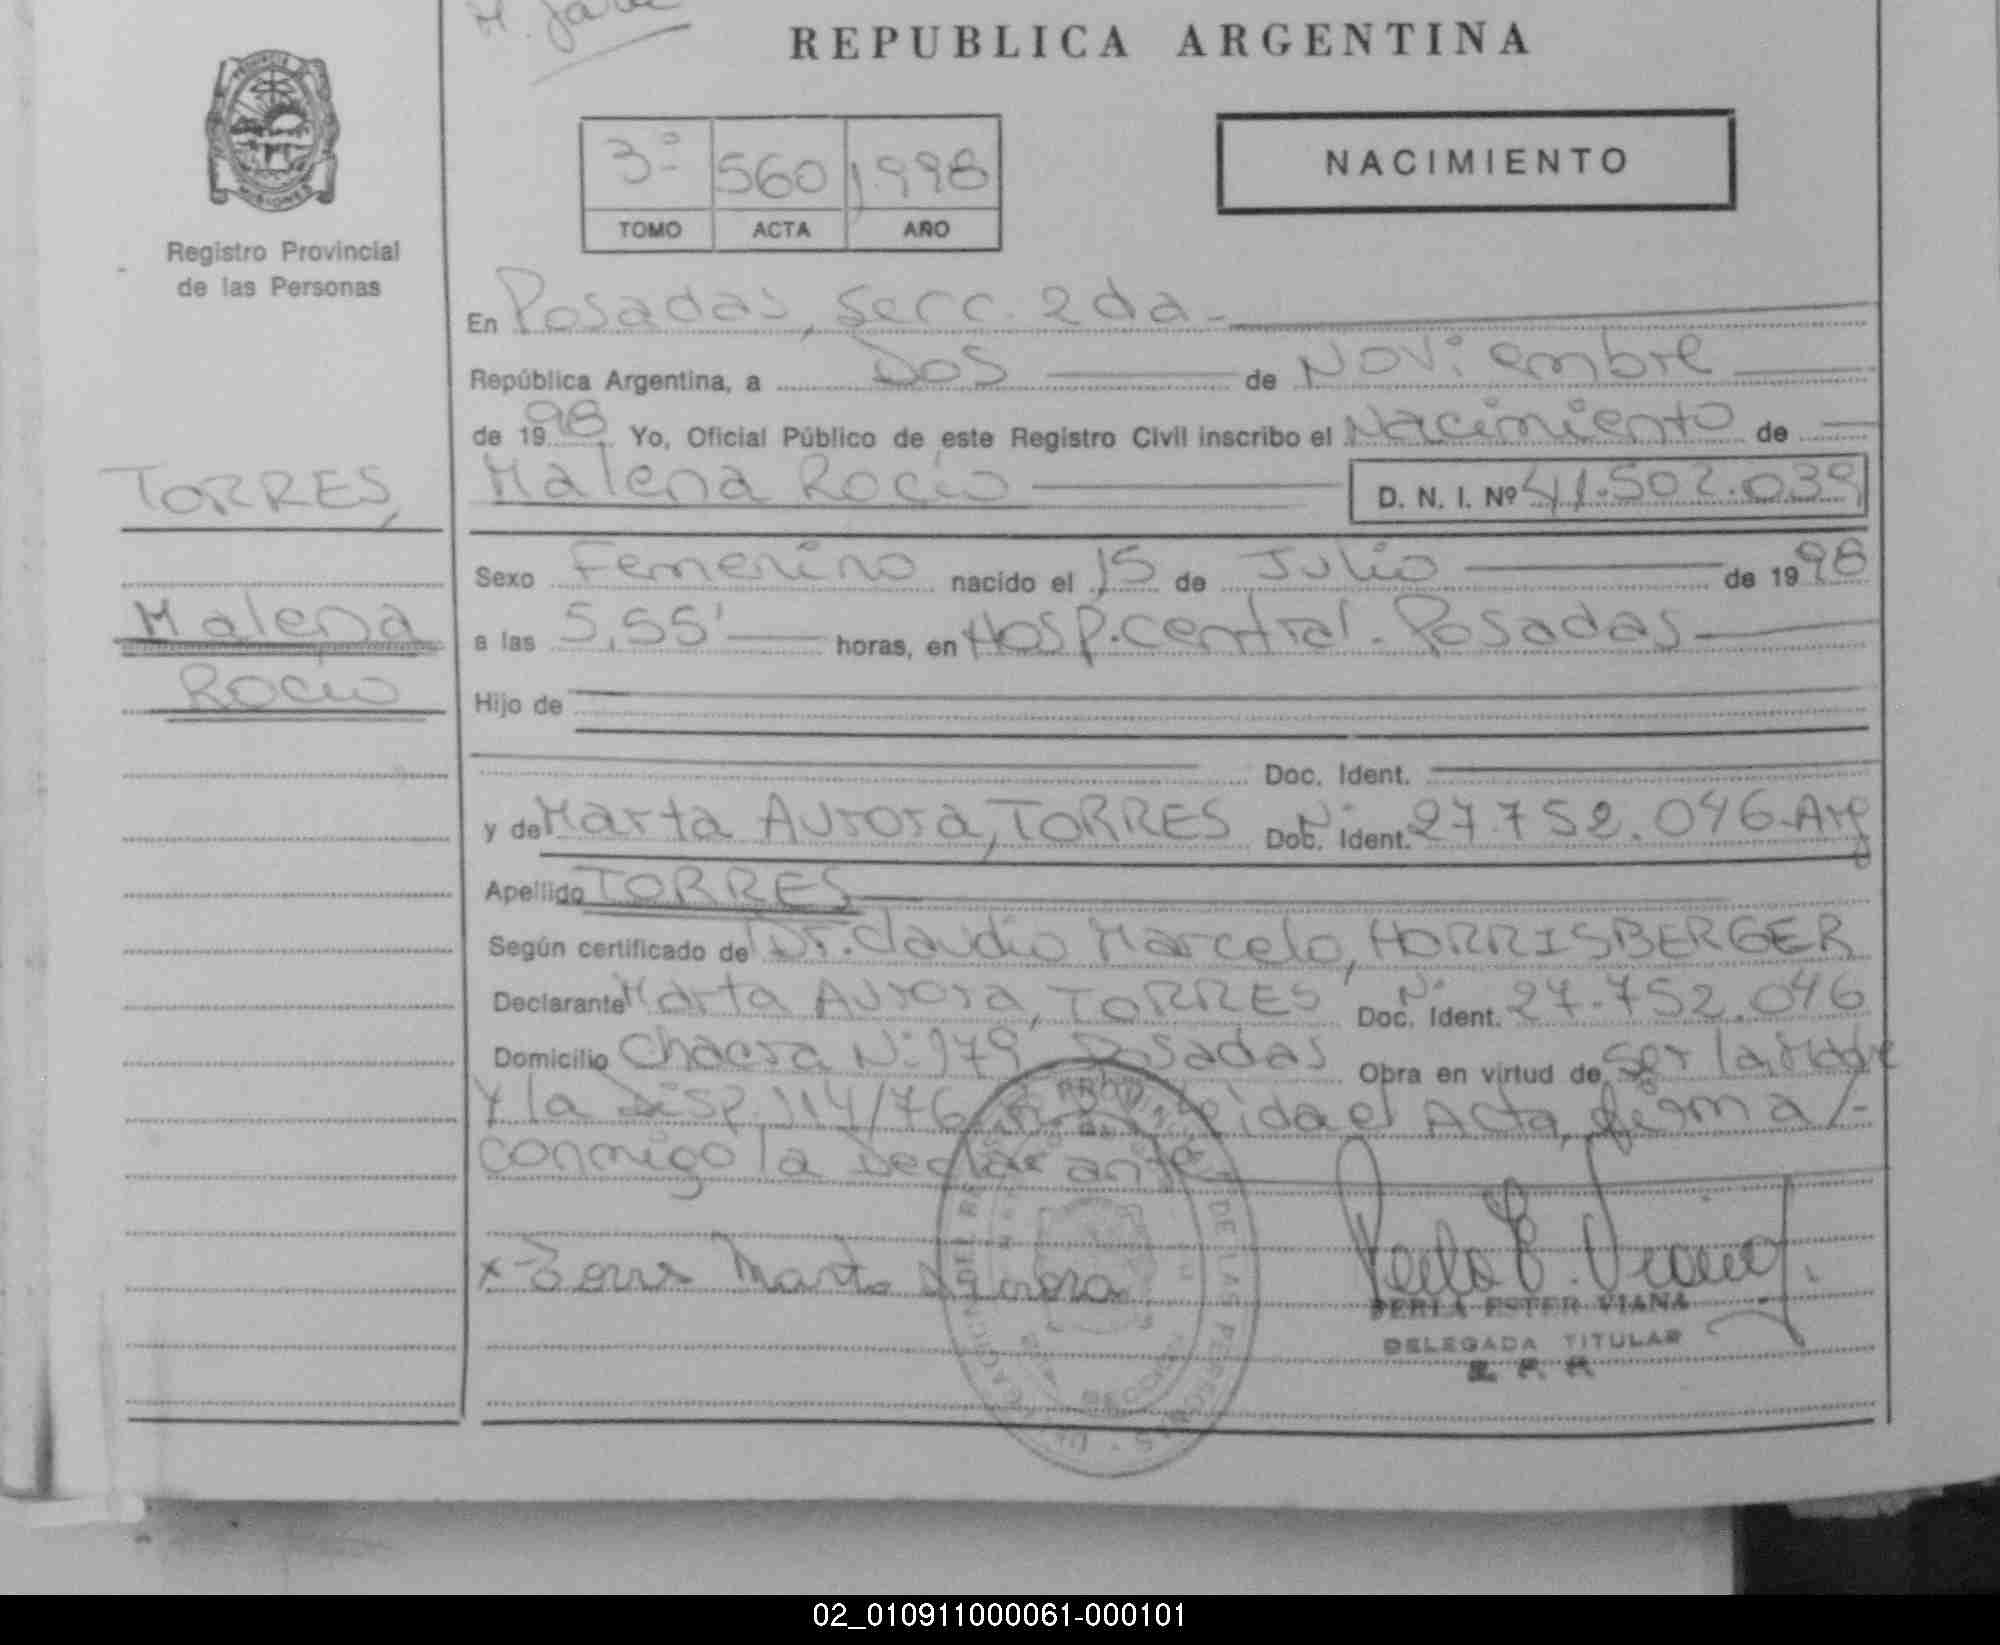 REPUBLICA ARGENTINA
NACIMIENTO
3º 560 1.998
TOMO ACTA AÑO
PROVINCIA DE MISIONES
Registro Provincial
de las Personas
En Posadas, Secc. 2da -
República Argentina, a Dos de Noviembre
de 1998 Yo, Oficial Público de este Registro Civil inscribo el Nacimiento de
Malena Rocio D. N. I. Nº 41.502.039
TORRES,
Malena
Rocio
Sexo Femenino nacido el 15 de Julio de 1998
a las 5,55' horas, en Hosp. central - Posadas
Hijo de
Doc. Ident.
y de Marta Aurora, TORRES Doc. Ident. Nº 27.752.046 - Arg
Apellido TORRES
Según certificado de Dr. Claudio Marcelo, HORRISBERGER
Declarante Marta Aurora, TORRES Doc. Ident. Nº 27.752.046
Domicilio Chacra Nº 179 Posadas Obra en virtud de ser la Madre
Y la Disp. 114/76 Leida el Acta, firma /-
conmigo la Declarante -
x Torres Marta Aurora
Perla E. Viana
PERLA ESTER VIANA
DELEGADA TITULAR
R. P. P.
02_010911000061-000101